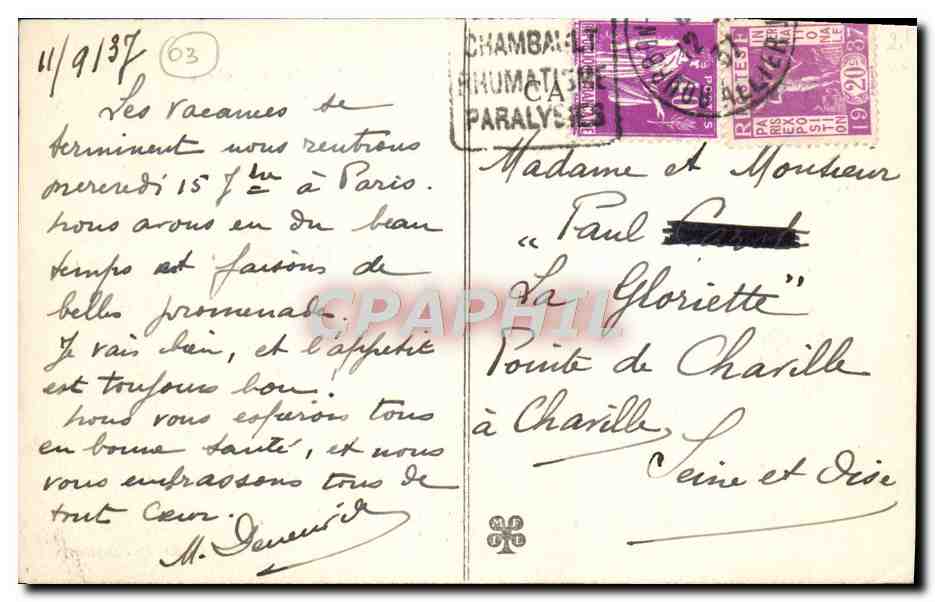 11/9/37
03
Les vacances se
terminent nous rentrons
mercredi 15 7bre à Paris.
nous avons eu du beau
temps et faisons de
belles promenades.
Je vais bien, et l'appétit
est toujours bon!
nous vous espérons tous
en bonne santé, et nous
vous embrassons tous de
tout Cœur.
M.
CHAMBAULT
RHUMATISME
CA
PARALYSIES
POSTES
12
37
ALLIER
POSTES RF
EXPOSITION INTERNATIONALE
PARIS
1937
20c
2.
Madame et Monsieur
Paul
"La Gloriette"
Pointe de Chaville
à Chaville
Seine et Oise
CPAPHIL